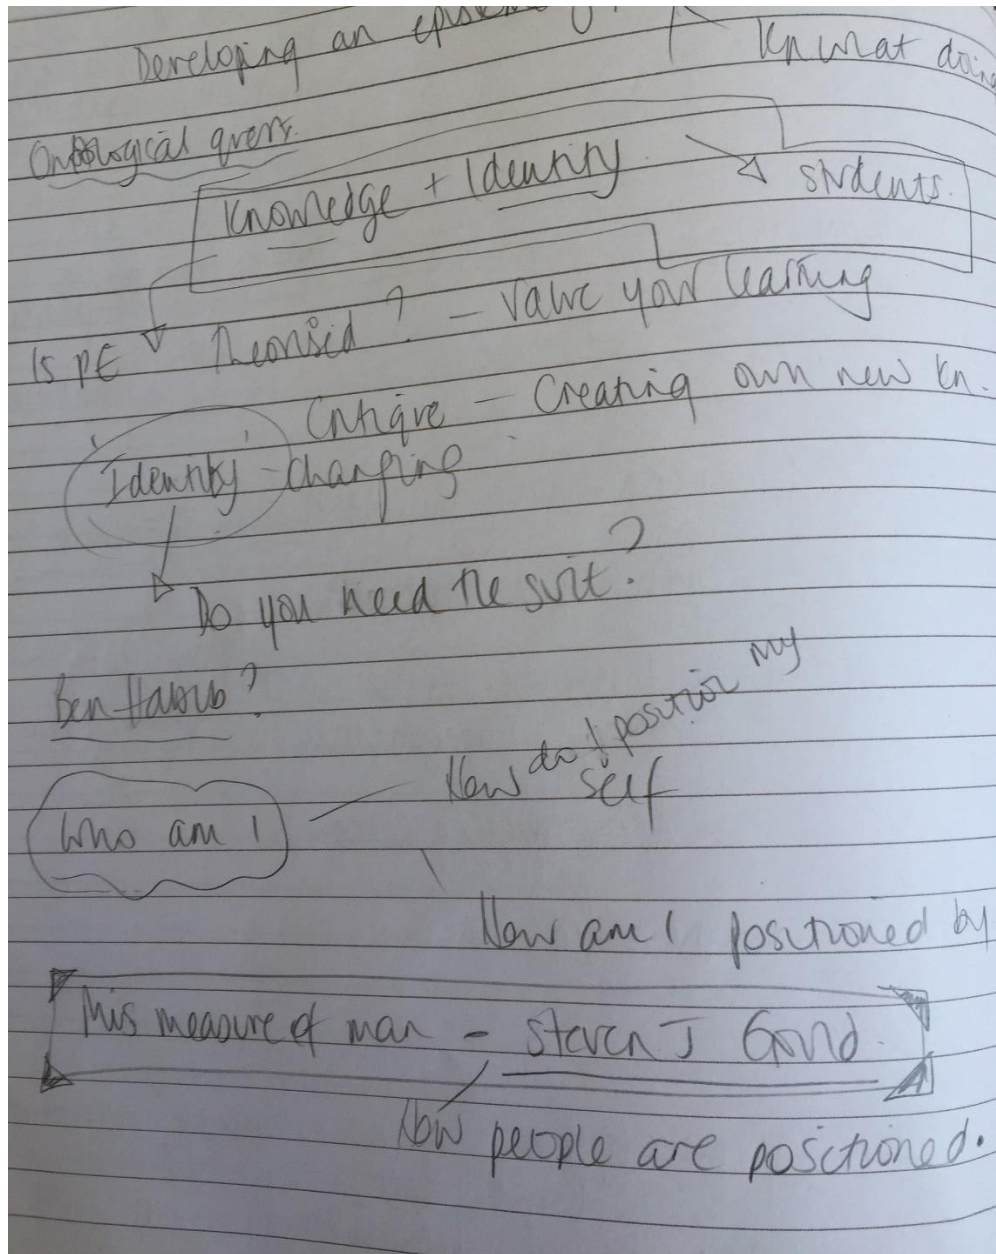 Developing an
Kn what doing
Ontological
Knowledge + Identity
students.
Is PE Theorised? - Value your learning
Critique - Creating own new kn.
'Identity' - changing
Do you need the suit?
Ben Habib?
Who am I
How do I position my
self
How am I positioned by
Mis measure of man - Steven J Gould
How people are positioned.